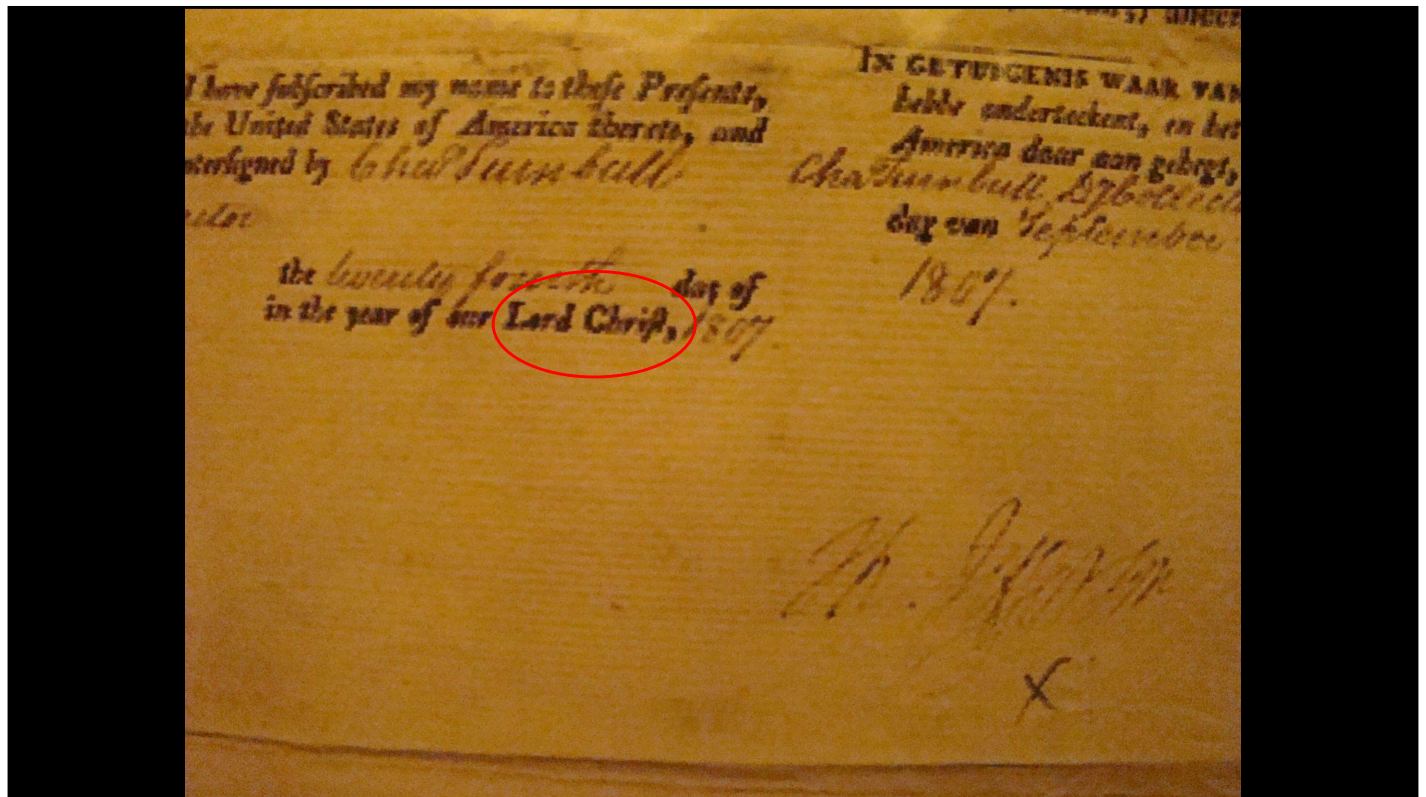 I have ſubſcribed my name to theſe Preſents,
the United States of America thereto, and
nterſigned by Chas Turnbull
the twenty fourth day of
in the year of our Lord Chriſt, 1807.
IN GETUIGENIS WAAR VAN
hebbe onderteekent, en het
America daar aan gehegt,
Cha Turnbull, Dy Collect
day van September
1807.
Th. Jefferson
X